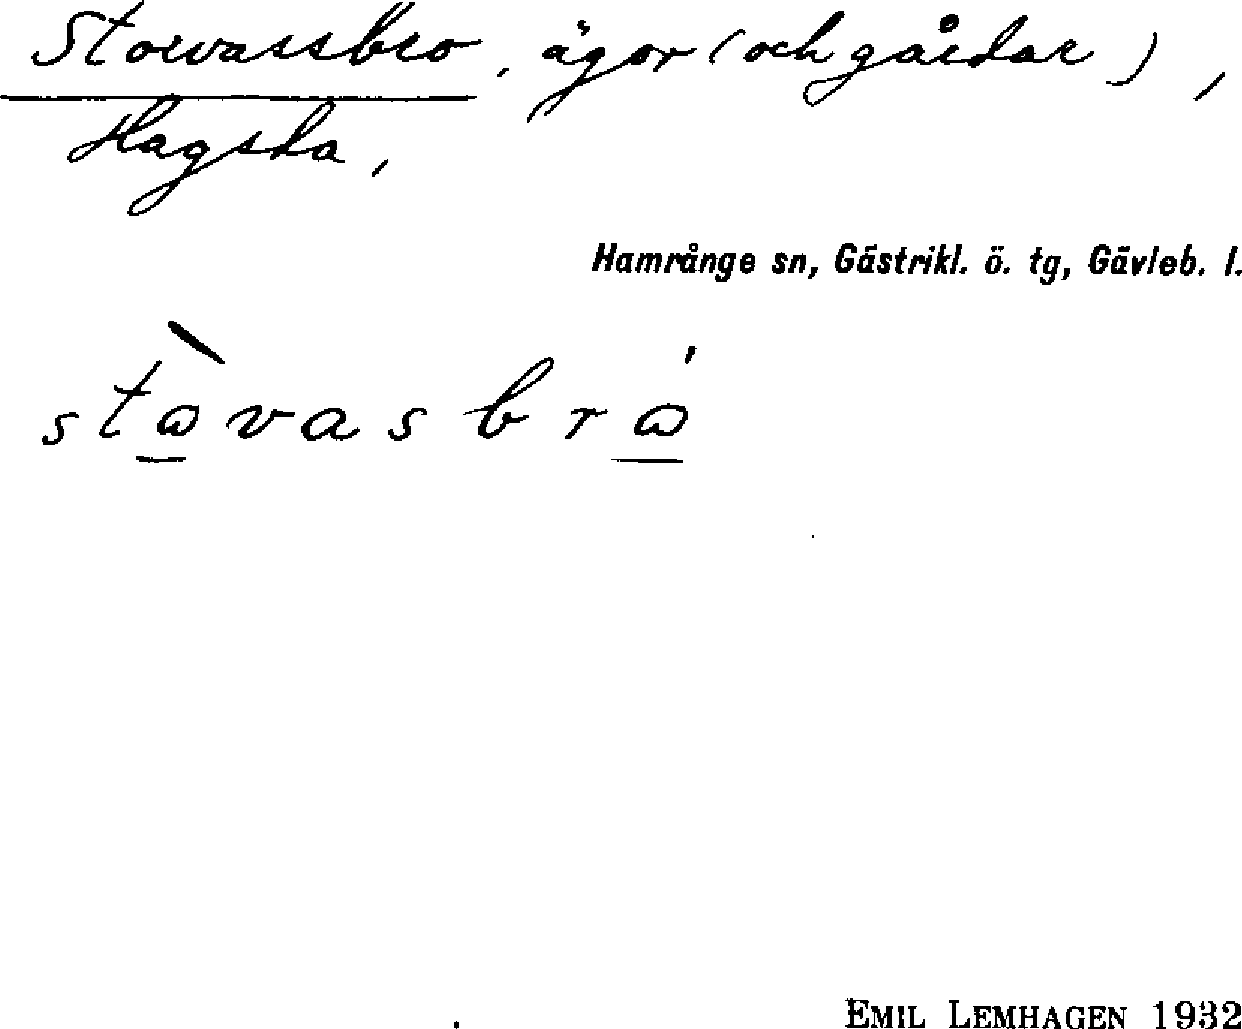 Storvarsbro, ägor (och gårdar),
Hagsta,
Hamrånge sn, Gästrikl. ö. tg, Gävleb. l.
stὼ̱vasbrώ̱
EMIL LEMHAGEN 1932